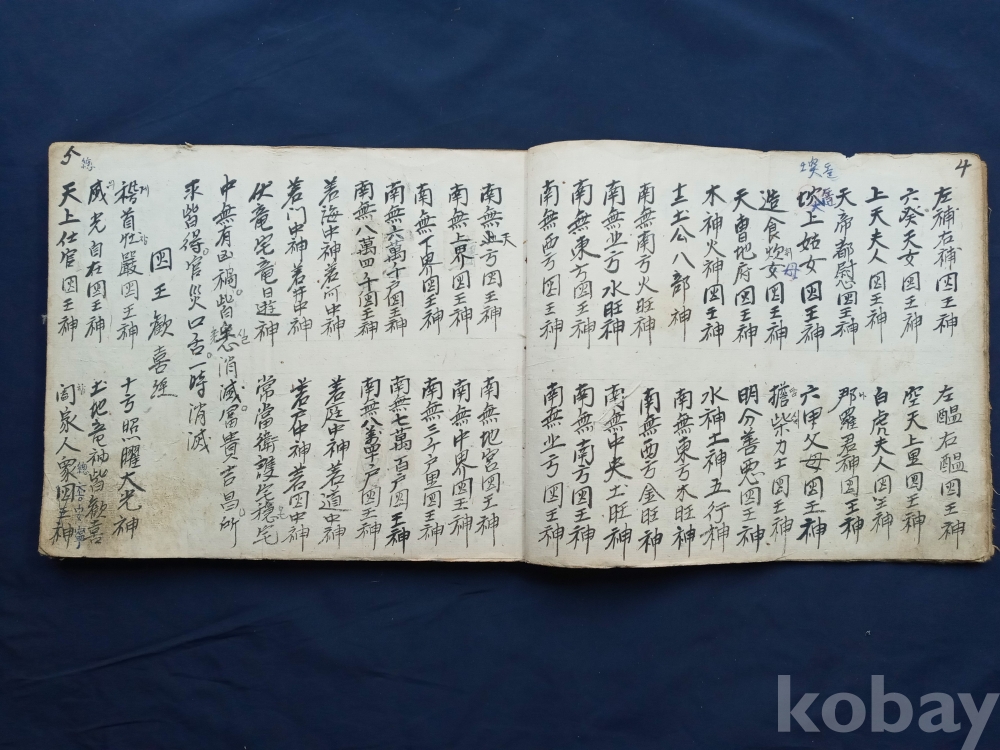 4
左補右補四王神 左醞右醞四王神
六癸天女四王神 空天上里四王神
上天夫人四王神 白虎夫人四王神
天帝都慰四王神 那羅君神四王神
上姑女四王神 六甲父母四王神
造食炊女四王神 擔柴力士四王神
母
天曹地府四王神 明分善悪四王神
木神火神四王神 水神土神五行神
土土公八部神 南無東方木旺神
南無南方火旺神 南無西方金旺神
南無北方水旺神 南無中央土旺神
南無東方四王神 南無南方四王神
南無西方四王神 南無北方四王神
5
南無北方四王神 南無地宮四王神
天
南無上界四王神 南無中界四王神
南無下界四王神 南無三千户里四王神
南無六萬千户四王神 南無七萬百户四王神
南無八萬四千四王神 南無八萬四千户四王神
若海中神若河中神 若庭中神若道中神
若门中神若井中神 若在中神若四中神
伏竜宅竜日遊神 常當衛護宅穩宅
中無有凶禍。皆悉消滅。富貴吉昌。所
求皆得。官災口舌。一時消滅
四王歡喜经
稽首性嚴四王神 十方照曜大光神
威光自在四王神 土地竜神皆歡喜
天上仕官四王神 阎家人衆四王神